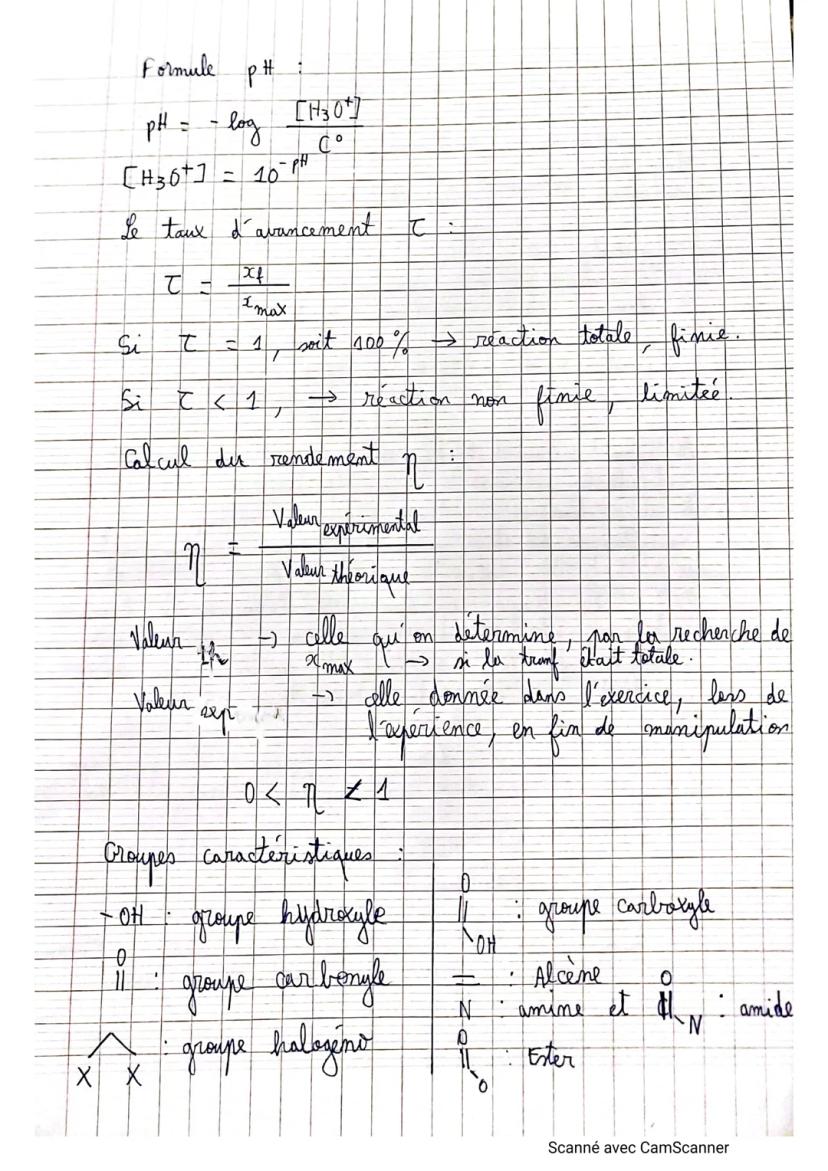 Formule pH :
pH = - log [H3O+] / C°
[H3O+] = 10^-pH
Le taux d'avancement τ :
τ = xf / xmax
Si τ = 1, soit 100% → réaction totale, finie.
Si τ < 1, → réaction non finie, limitée.
Calcul du rendement η :
η = Valeur expérimental / Valeur théorique
Valeur th → celle qu'on détermine, par la recherche de
xmax → si la tranf était totale.
Valeur exp → celle donnée dans l'exercice, lors de
l'expérience, en fin de manipulation
0 < η < 1
Groupes caractéristiques :
- OH : groupe hydroxyle
O
|| : groupe carbonyle
: groupe halogéno
X X
O
|| : groupe carboxyle
\OH
= : Alcène
N : amine et O || \N : amide
O
|| : Ester
\O
Scanné avec CamScanner